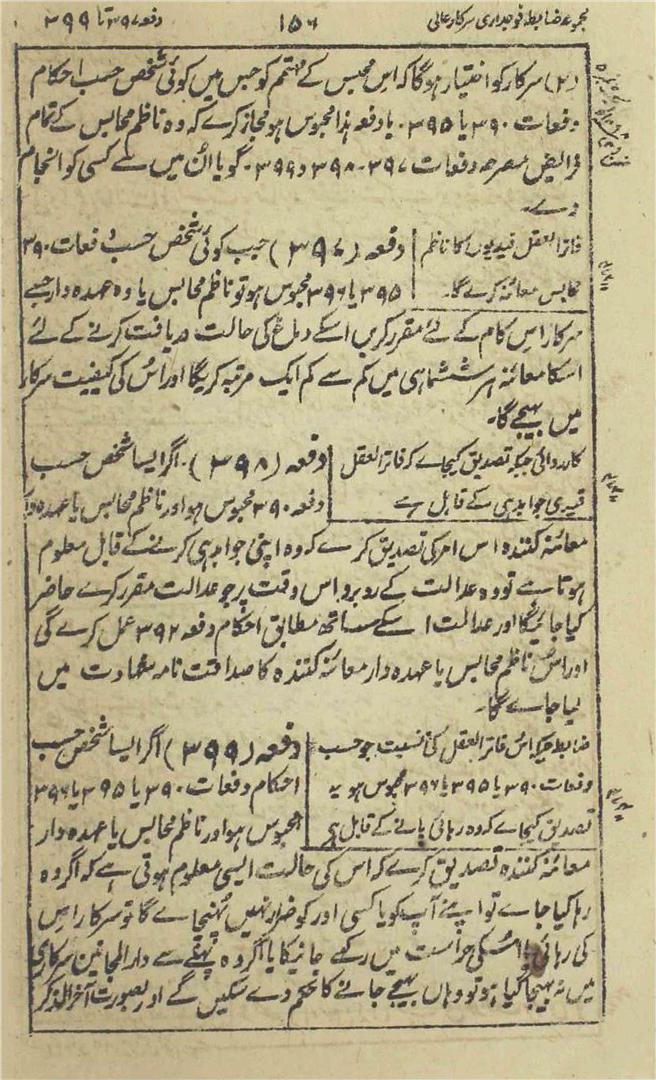 مجموعہ ضابطہ فوجداری سرکار عالی ۱۵۶ دفعہ ۳۹۷ تا ۳۹۹
(۲) سرکار کو اختیار ہوگا کہ اس محبس کے مہتمم کو جس میں کوئی شخص حسب احکام
دفعات ۳۹۰ یا ۳۹۵۔ یا دفعہ ہذا محبوس ہو مجاز کرے کہ وہ ناظم محابس کے تمام
فرائض مصرحہ دفعات ۳۹۷۔ ۳۹۸ و ۳۹۹۔ گویا اُن میں سے کسی کو انجام
دے۔
فاتر العقل قیدیوں کا ناظم
محابس معائنہ کرے گا۔
دفعہ (۳۹۷) جب کوئی شخص حسب دفعات ۳۹۰
۳۹۵ یا ۳۹۶ محبوس ہو تو ناظم محابس یا وہ عہدہ دار جسے
سرکار اس کام کے لئے مقرر کریں اسکے دماغ کی حالت دریافت کرنے کے لئے
اسکا معائنہ ہر ششماہی میں کم سے کم ایک مرتبہ کریگا اور اُس کی کیفیت سرکار
میں بھیجے گا۔
کارروائی جبکہ تصدیق کیجاے کہ فاتر العقل
قیدی جوابدہی کے قابل ہے
دفعہ (۳۹۸)۔ اگر ایسا شخص حسب
دفعہ ۳۹۰ محبوس ہو اور ناظم محابس یا عہدہ دار
معائنہ کنندہ اس امر کی تصدیق کرے کہ وہ اپنی جوابدہی کرنے کے قابل معلوم
ہوتا ہے تو وہ عدالت کے روبرو اس وقت پر جو عدالت مقرر کرے حاضر
کیا جائیگا اور عدالت اسکے ساتھ مطابق احکام دفعہ ۳۹۲ عمل کرے گی
اور اس ناظم محابس یا عہدہ دار معائنہ کنندہ کا صداقت نامہ شہادت میں
لیا جاے گا۔
ضابطہ جبکہ اُس فاتر العقل کی نسبت جو حسب
دفعات ۳۹۰ یا ۳۹۵ یا ۳۹۶ محبوس ہو یہ
تصدیق کیجاے کہ وہ رہائی پانے کے قابل ہے
دفعہ (۳۹۹) اگر ایسا شخص حسب
احکام دفعات ۳۹۰ یا ۳۹۵ یا ۳۹۶
محبوس ہو اور ناظم محابس یا عہدہ دار
معائنہ کنندہ تصدیق کرے کہ اس کی حالت ایسی معلوم ہوتی ہے کہ اگر وہ
رہا کیا جاے تو اپنے آپ کو یا کسی اور کو ضرر نہیں پہنچاے گا تو سرکار اس
کی رہائی یا اُسکی حراست میں رکھے جانیکا یا اگر وہ پہلے سے دار المجانین سرکاری
میں نہ بھیجا گیا ہو تو وہاں بھیجے جانے کا حکم دے سکیں گے اور بصورت آخر الذکر